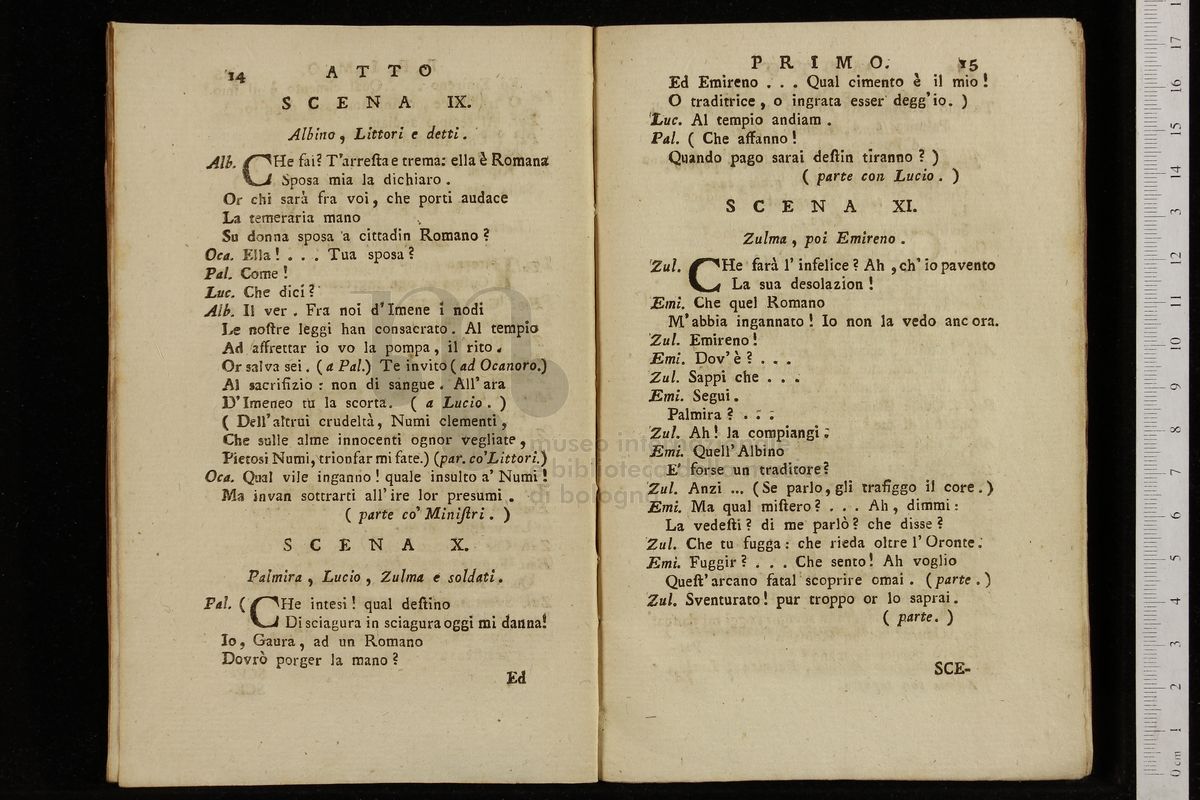 14 ATTO
SCENA IX.
Albino, Littori e detti.
Alb. CHe fai? T'arresta e trema: ella è Romana
Sposa mia la dichiaro.
Or chi sarà fra voi, che porti audace
La temeraria mano
Su donna sposa a cittadin Romano?
Oca. Ella! . . . Tua sposa?
Pal. Come!
Luc. Che dici?
Alb. Il ver. Fra noi d'Imene i nodi
Le nostre leggi han consacrato. Al tempio
Ad affrettar io vo la pompa, il rito.
Or salva sei. (a Pal.) Te invito (ad Ocanoro.)
Al sacrifizio: non di sangue. All' ara
D'Imeneo tu la scorta. (a Lucio.)
( Dell'altrui crudeltà, Numi clementi,
Che sulle alme innocenti ognor vegliate,
Pietosi Numi, trionfar mi fate.) (par. co'Littori.)
Oca. Qual vile inganno! quale insulto a' Numi!
Ma invan sottrarti all'ire lor presumi.
( parte co' Ministri. )
SCENA X.
Palmira, Lucio, Zulma e soldati.
Pal. ( CHe intesi! qual destino
Di sciagura in sciagura oggi mi danna!
Io, Gaura, ad un Romano
Dovrò porger la mano?
Ed
PRIMO. 15
Ed Emireno . . . Qual cimento è il mio!
O traditrice, o ingrata esser degg'io. )
Luc. Al tempio andiam.
Pal. ( Che affanno!
Quando pago sarai destin tiranno? )
( parte con Lucio. )
SCENA XI.
Zulma, poi Emireno.
Zul. CHe farà l'infelice? Ah, ch'io pavento
La sua desolazion!
Emi. Che quel Romano
M'abbia ingannato! Io non la vedo ancora.
Zul. Emireno!
Emi. Dov'è? . . .
Zul. Sappi che . . .
Emi. Segui.
Palmira? . . .
Zul. Ah! la compiangi.
Emi. Quell'Albino
E' forse un traditore?
Zul. Anzi ... (Se parlo, gli trafiggo il core.)
Emi. Ma qual mistero? . . . Ah, dimmi:
La vedesti? di me parlò? che disse?
Zul. Che tu fugga: che rieda oltre l'Oronte.
Emi. Fuggir? . . . Che sento! Ah voglio
Quest'arcano fatal scoprire omai. (parte.)
Zul. Sventurato! pur troppo or lo saprai.
( parte. )
SCE-
museo internazionale
e biblioteca della musica
di bologna
0 cm 1 2 3 4 5 6 7 8 9 10 11 12 13 14 15 16 17